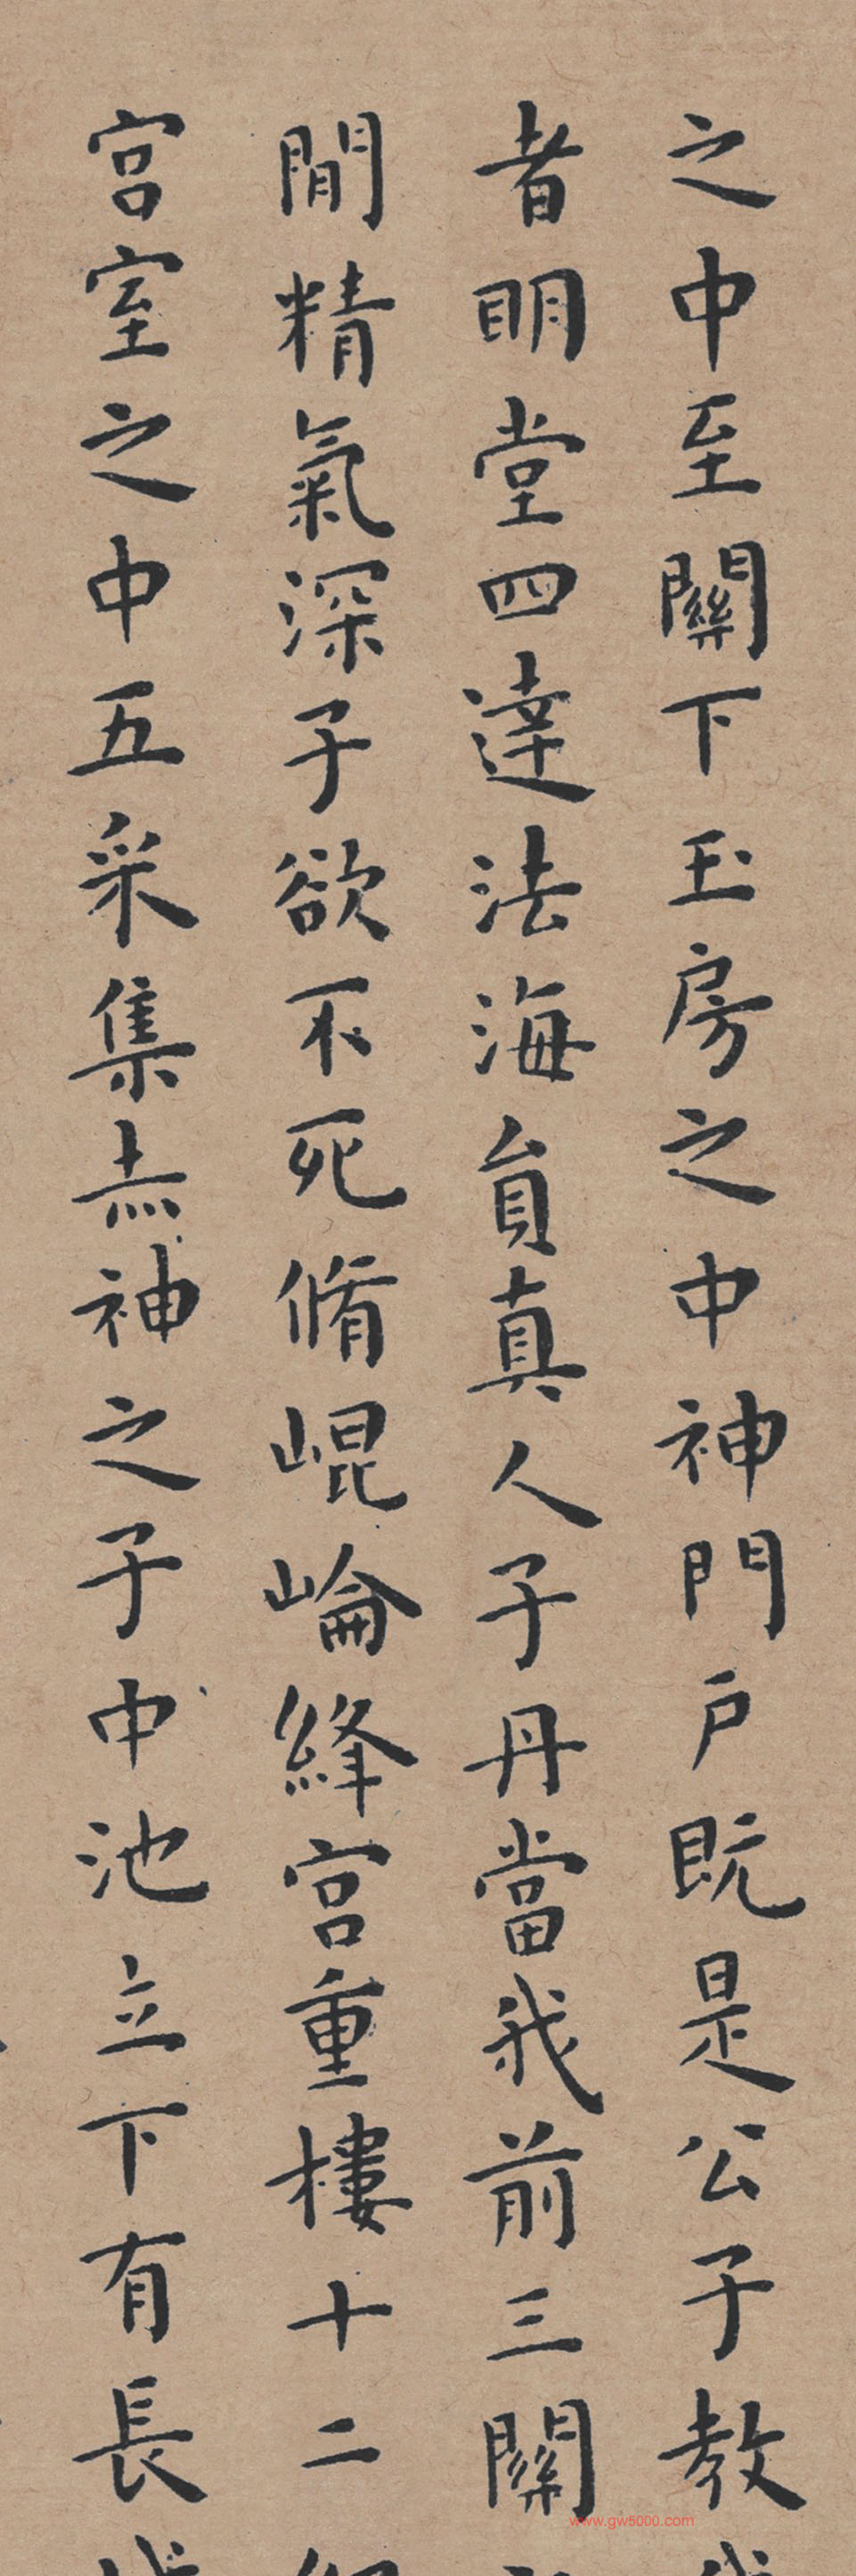 之中至關下玉房之中神門戶既是公子教
者明堂四達法海負真人子丹當我前三關
間精氣深子欲不死脩崐崘絳宮重樓十二
宮室之中五采集赤神之子中池立下有長
www.gw5000.com